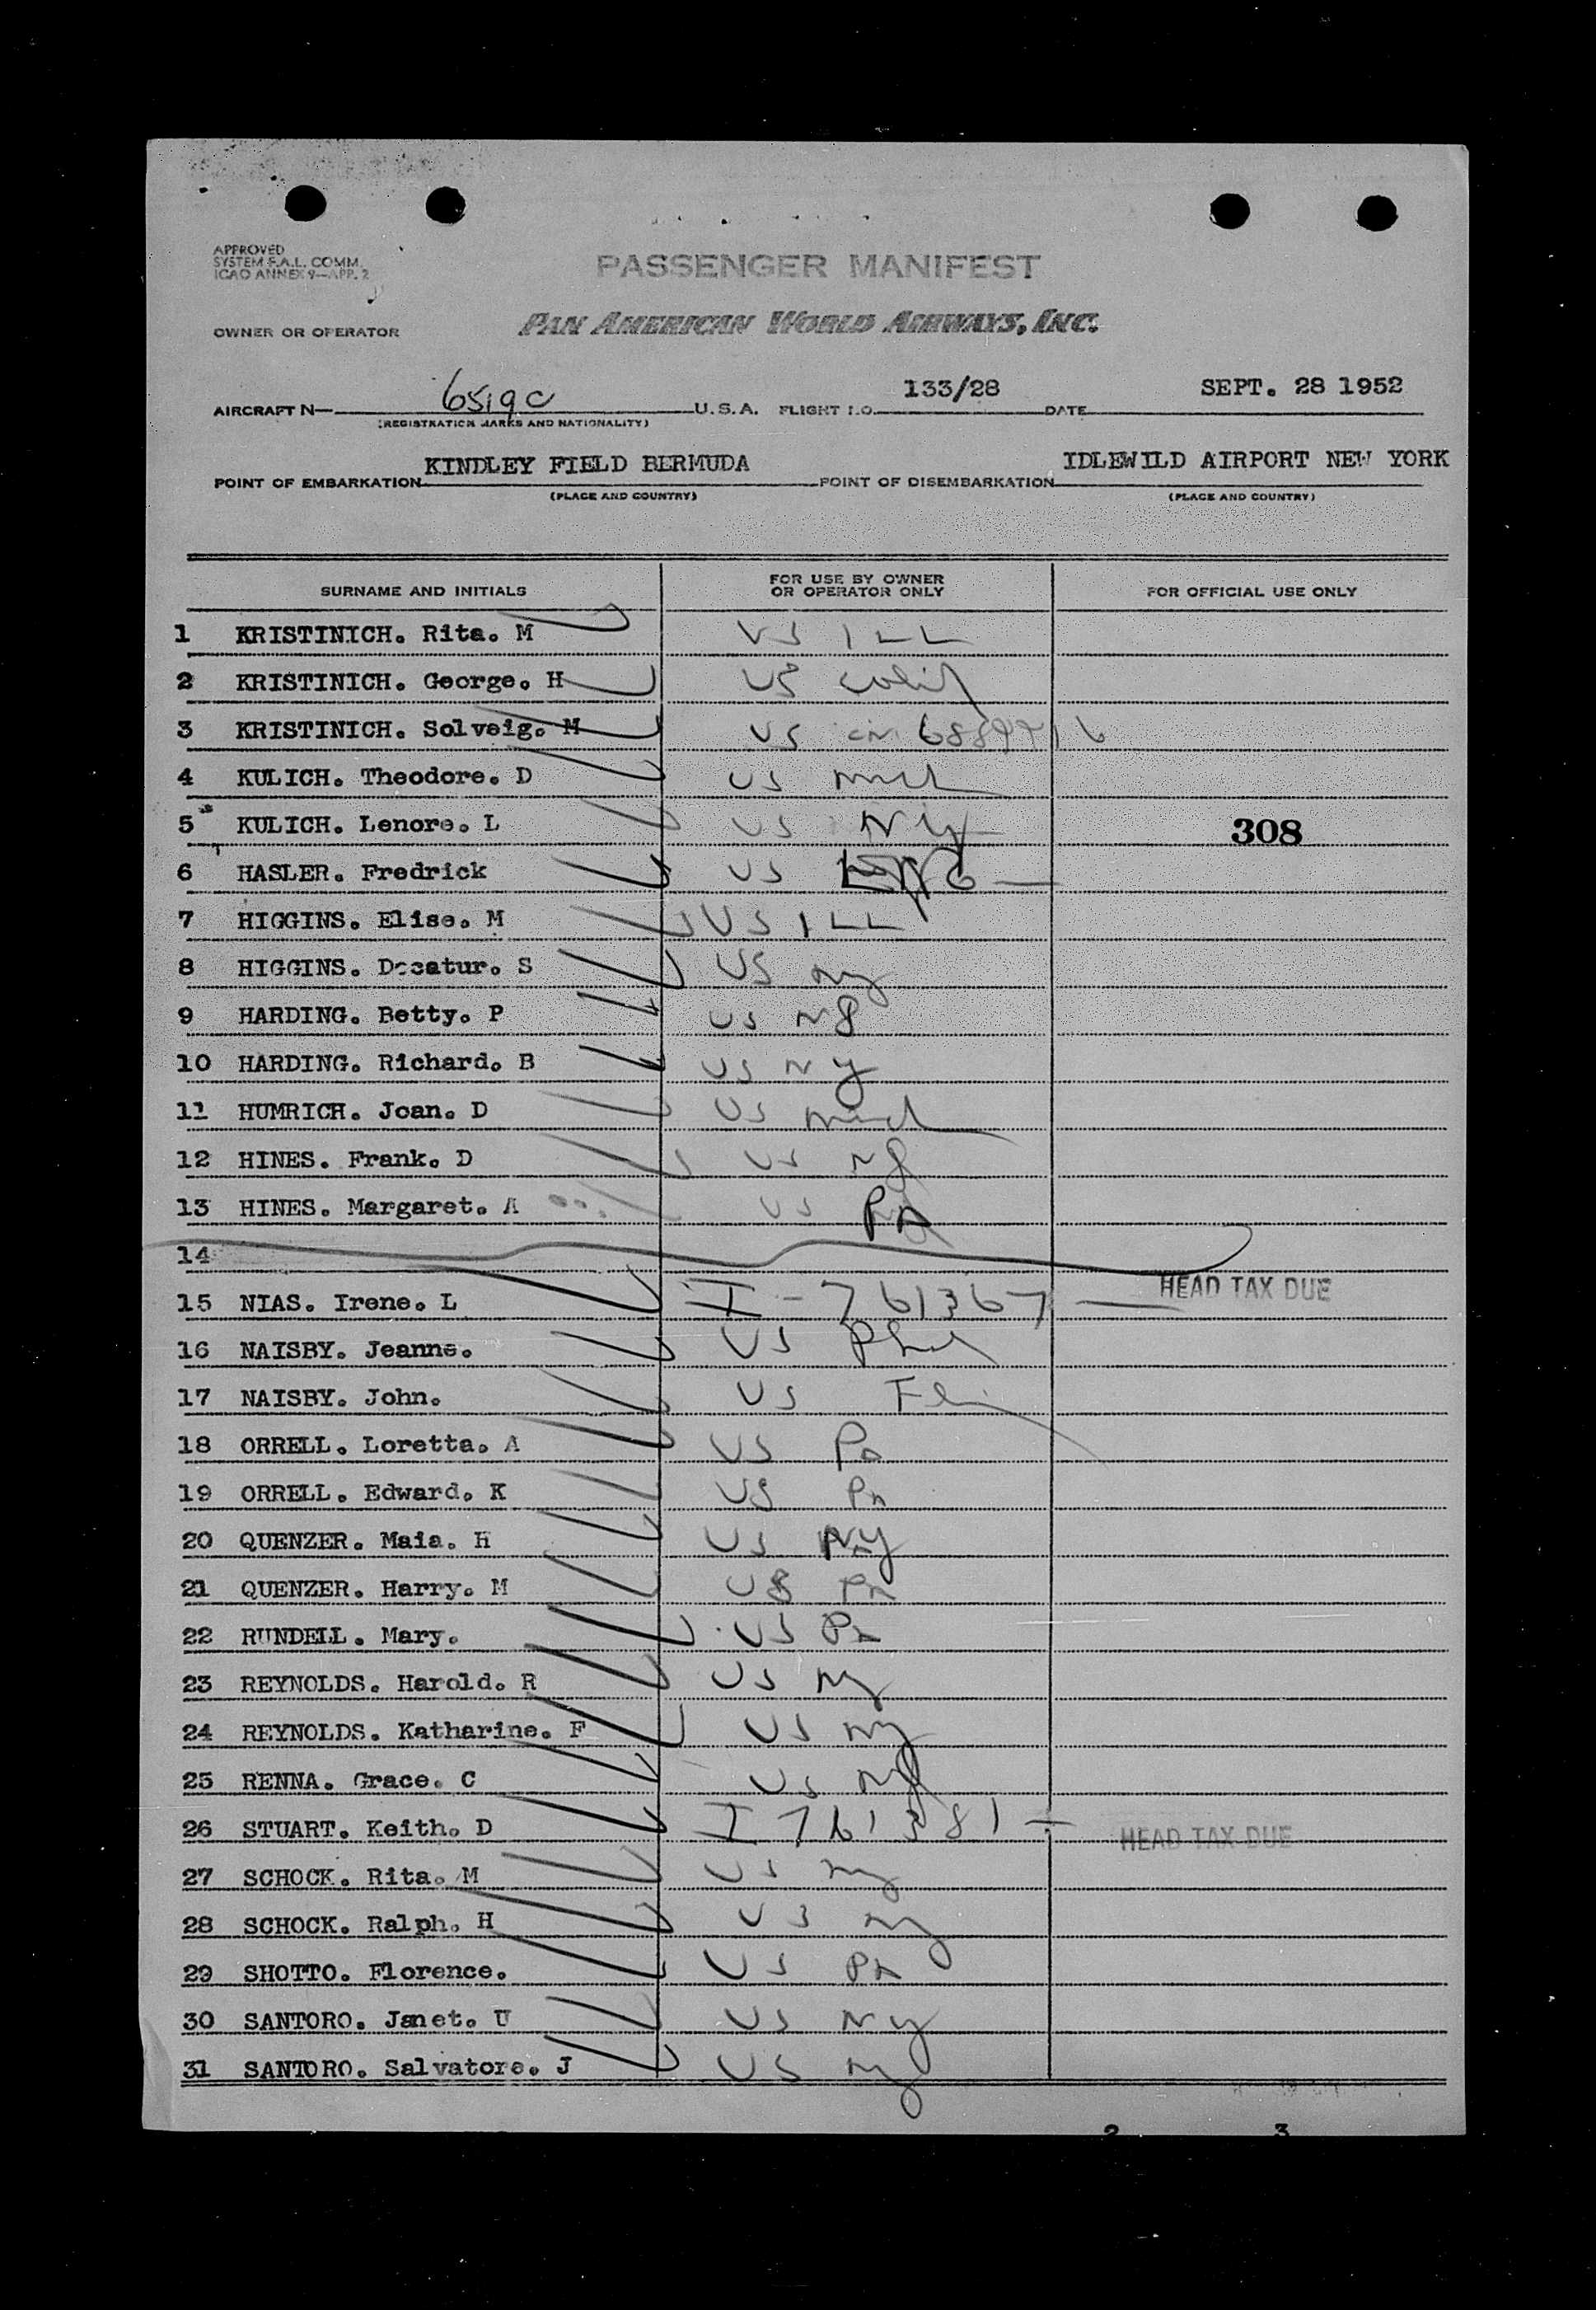 APPROVED
SYSTEM F.A.L. COMM.
ICAO ANNEX 9—APP. 2
PASSENGER MANIFEST
OWNER OR OPERATOR PAN AMERICAN WORLD AIRWAYS, INC.
AIRCRAFT N— 6519C U.S.A. FLIGHT NO. 133/28 DATE SEPT. 28 1952
(REGISTRATION MARKS AND NATIONALITY)
POINT OF EMBARKATION KINDLEY FIELD BERMUDA POINT OF DISEMBARKATION IDLEWILD AIRPORT NEW YORK
(PLACE AND COUNTRY) (PLACE AND COUNTRY)
SURNAME AND INITIALS FOR USE BY OWNER OR OPERATOR ONLY FOR OFFICIAL USE ONLY
1 KRISTINICH. Rita. M US ILL
2 KRISTINICH. George. H US Calif
3 KRISTINICH. Solveig. M US
4 KULICH. Theodore. D US Mich
5 KULICH. Lenore. L US NY 308
6 HASLER. Fredrick US ENG
7 HIGGINS. Elise. M US ILL
8 HIGGINS. Decatur. S US NY
9 HARDING. Betty. P US
10 HARDING. Richard. B US NY
11 HUMRICH. Joan. D US Mich
12 HINES. Frank. D US
13 HINES. Margaret. A US PA
14
15 NIAS. Irene. L I-761367 HEAD TAX DUE
16 NAISBY. Jeanne. US
17 NAISBY. John. US
18 ORRELL. Loretta. A US Pa
19 ORRELL. Edward. K US Pa
20 QUENZER. Maia. H US NY
21 QUENZER. Harry. M US Pa
22 RUNDELL. Mary. US Pa
23 REYNOLDS. Harold. R US NY
24 REYNOLDS. Katharine. F US NY
25 RENNA. Grace. C US
26 STUART. Keith. D I 761381 HEAD TAX DUE
27 SCHOCK. Rita. M US NY
28 SCHOCK. Ralph. H US NY
29 SHOTTO. Florence. US PA
30 SANTORO. Janet. U US NY
31 SANTORO. Salvatore. J US NY